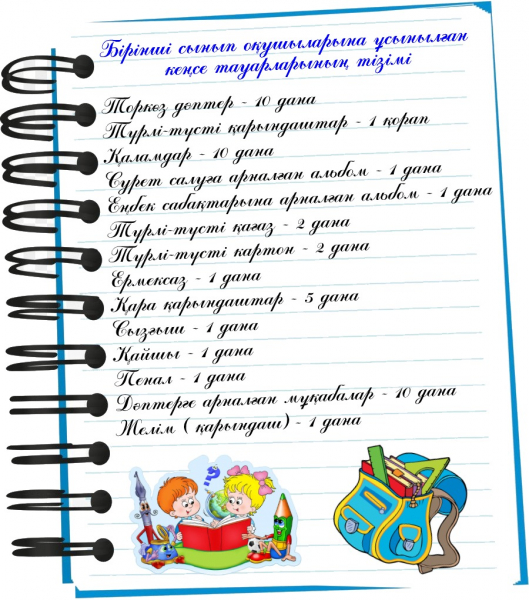 Бірінші сынып оқушыларына ұсынылған
кеңсе тауарларының тізімі
Торкөз дәптер - 10 дана
Түрлі-түсті қарындаштар - 1 қорап
Қаламдар - 10 дана
Сурет салуға арналған альбом - 1 дана
Еңбек сабақтарына арналған альбом - 1 дана
Түрлі-түсті қағаз - 2 дана
Түрлі-түсті картон - 2 дана
Ермексаз - 1 дана
Қара қарындаштар - 5 дана
Сызғыш - 1 дана
Қайшы - 1 дана
Пенал - 1 дана
Дәптерге арналған мұқабалар - 10 дана
Желім ( қарындаш) - 1 дана